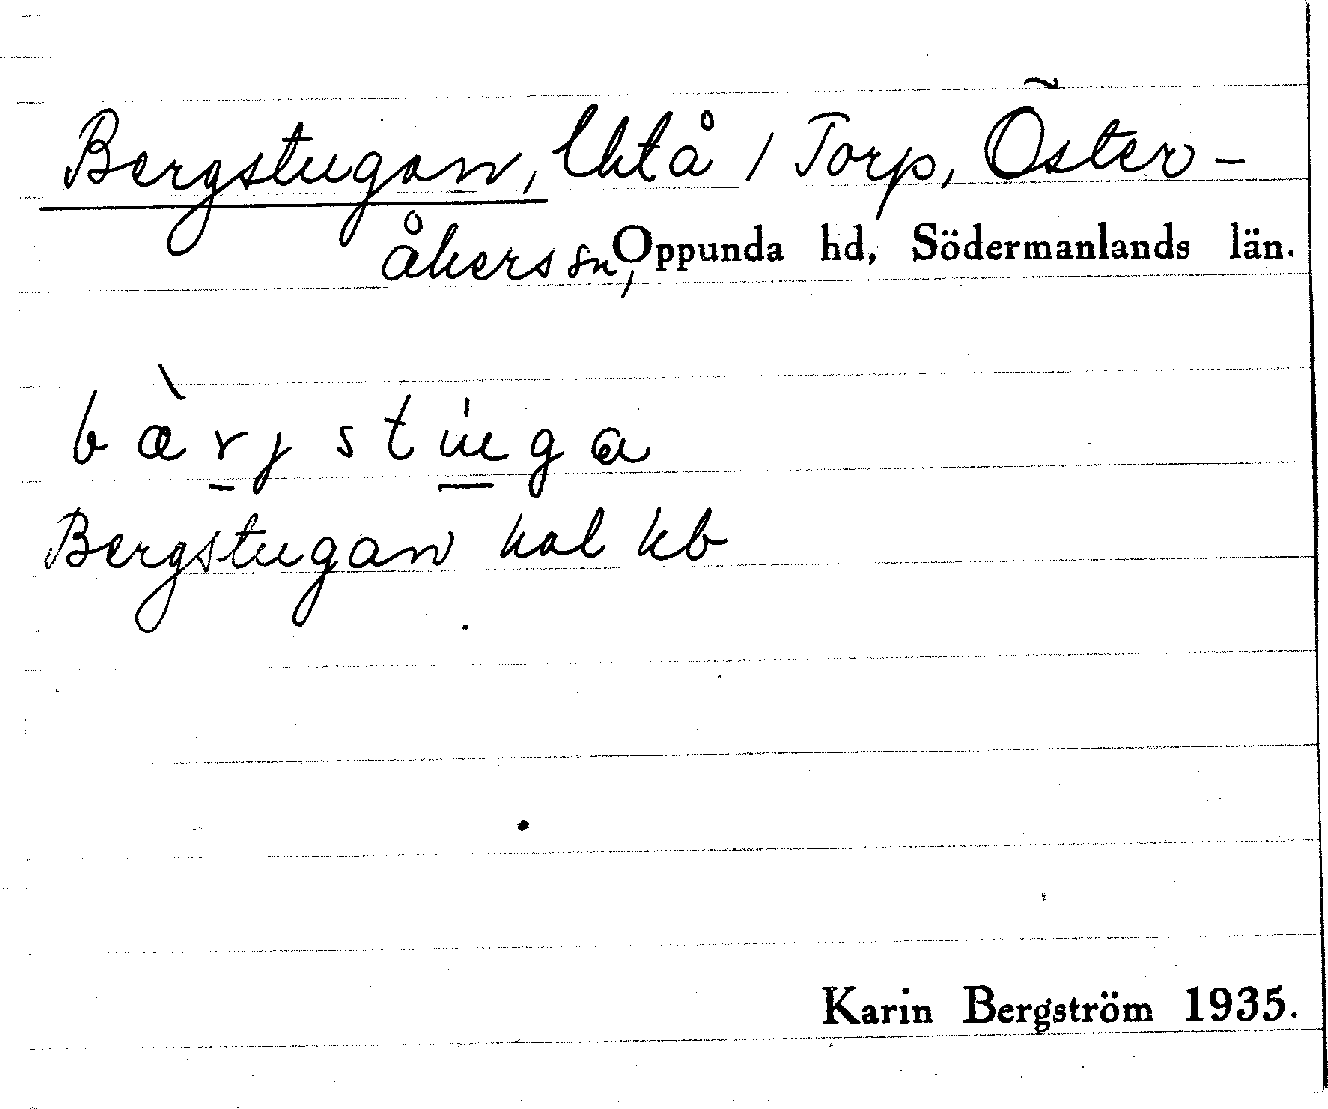 Bergstugan, Uttå / Torp, Öster-
åkers sn, Oppunda hd, Södermanlands län.
bàrj stuga
Bergstugan kal kb
Karin Bergström 1935.